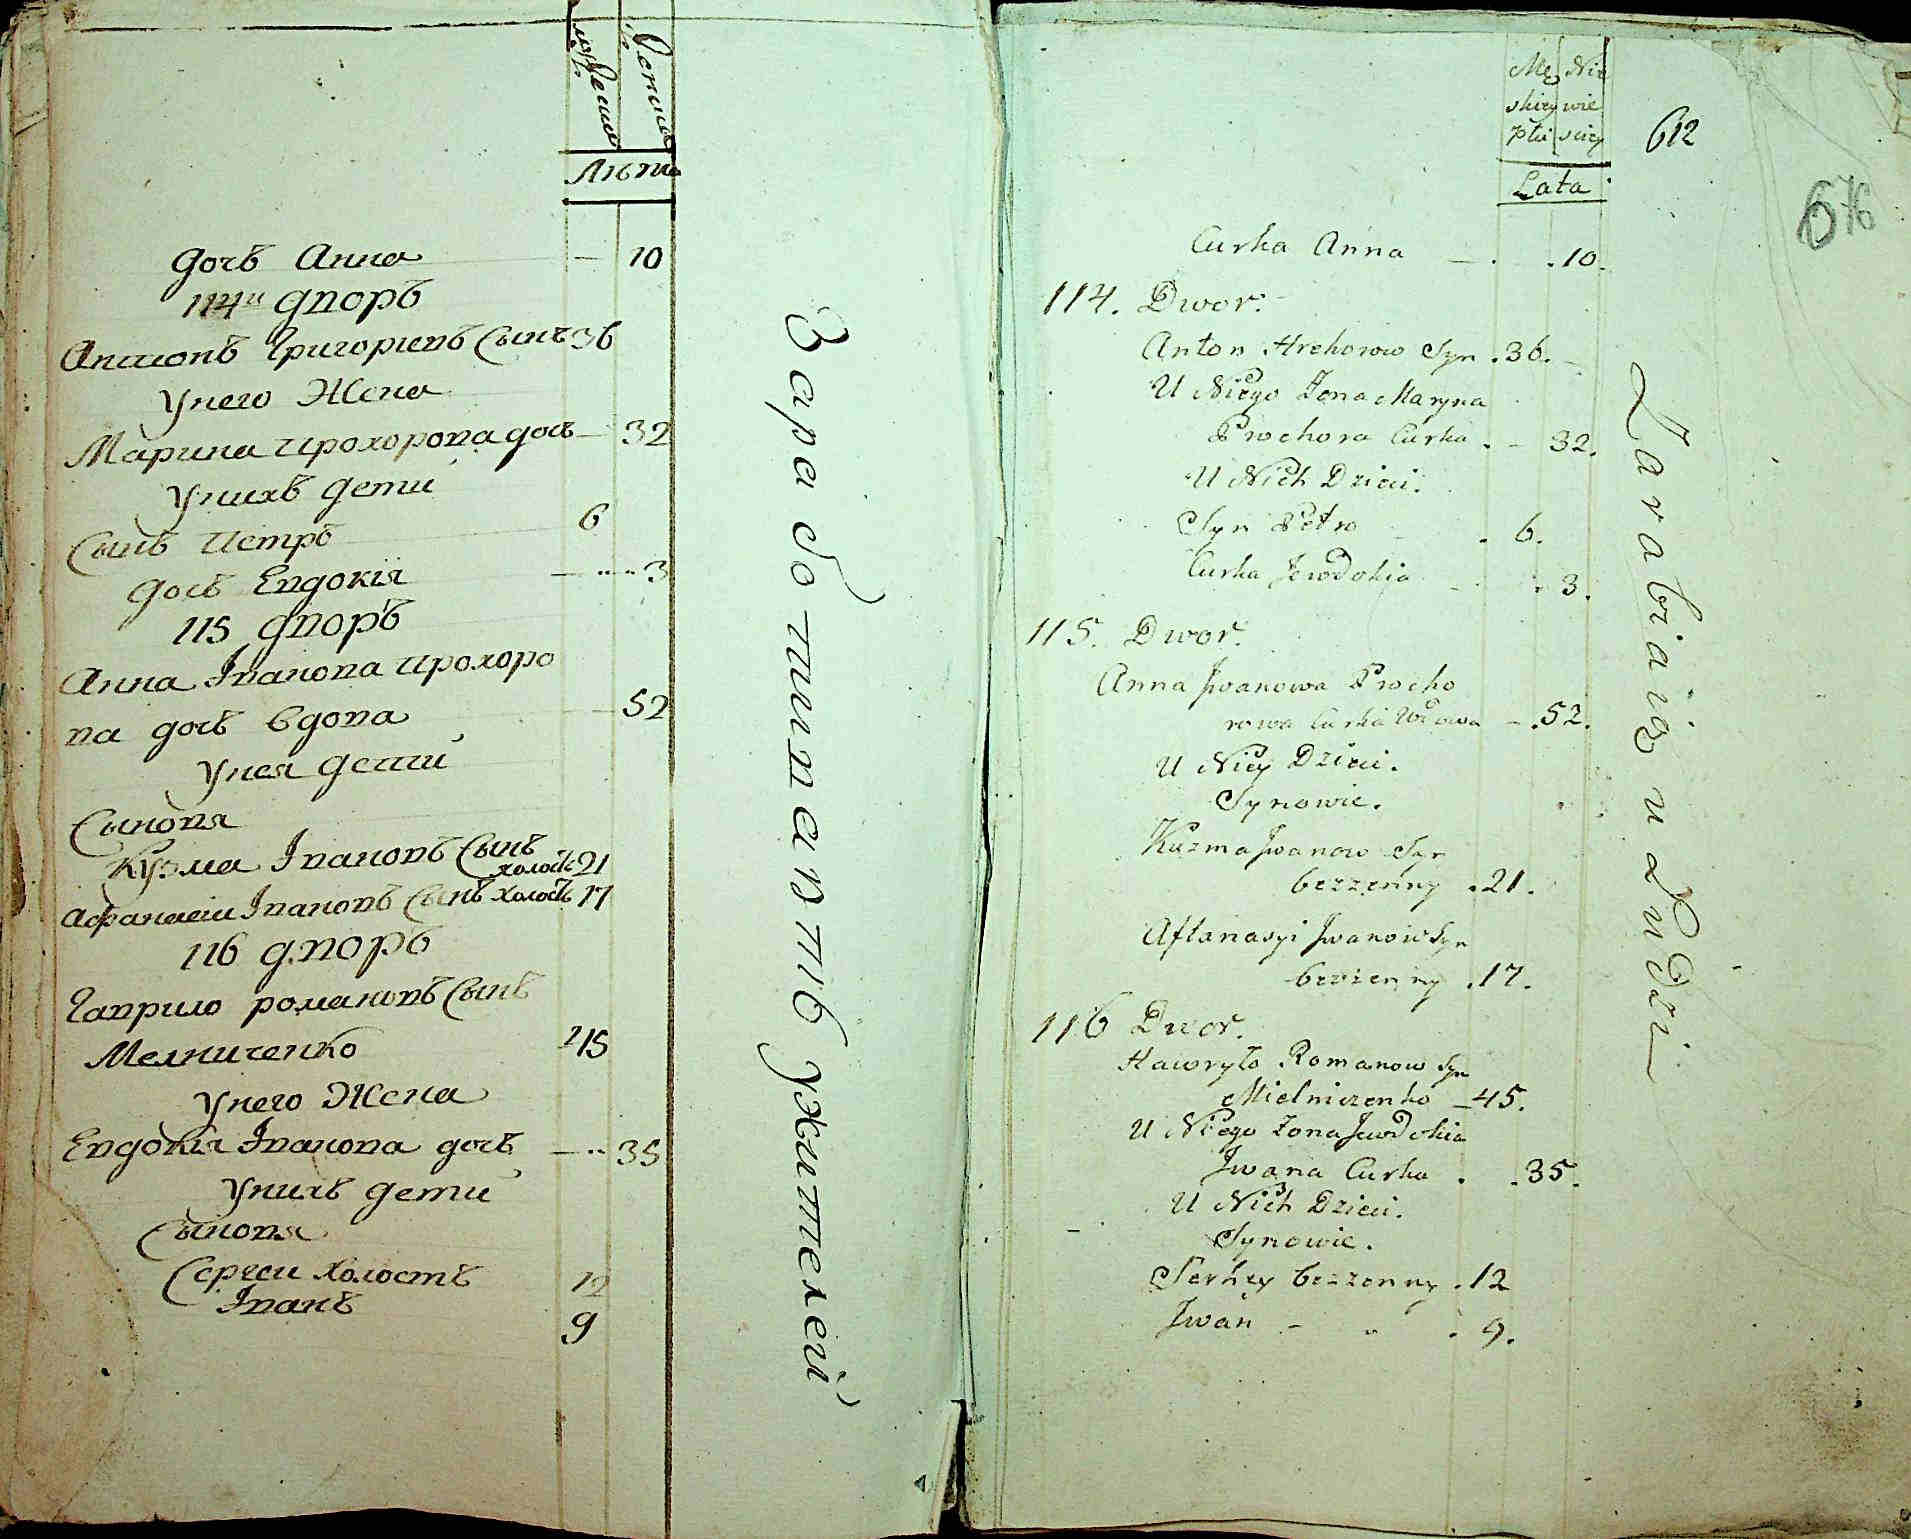 Лѣта
дочь Анна — 10
114й дворъ
Антонъ Григориевъ Сынъ 36
Унего Жена
Марина Прохорова дочь — 32
Унихъ дети
Сынъ Петръ 6
дочь Евдокія — 3
115 дворъ
Анна Іванова Прохоро
ва дочь вдова 52
Унея дети
Сыновя
Кузма Івановъ Сынъ
холостъ 21
Афанасии Івановъ Сынъ холостъ 17
116 дворъ
Гаврило романовъ Сынъ
Мелниченко 45
Унего Жена
Евдокія Іванова дочь — 35
Унихъ дети
Сыновя
Сергеи холостъ 12
Іванъ 9
Заработивать ужителей
Mę Nie
skiey wie
płci sciey
Lata
612
676
Curka Anna — 10.
114. Dwor.
Anton Hrehorow Syn .36.
U Niego Zona Maryna
Prochora Curka . – 32.
U Nich Dzieci.
Syn Petro . 6.
Curka Jewdokia – . 3.
115. Dwor.
Anna Jwanowa Procho
rowa Curka Wdowa – .52.
U Niey Dzieci.
Synowie.
Kuzma Jwanow Syn
bezzenny .21.
Aftanasyi Jwanow Syn
bezzenny .17.
116 Dwor.
Hawryło Romanow Syn
Mielniczenko – 45.
U Niego Zona Jewdokia
Jwana Curka . .35.
U Nich Dzieci.
Synowie.
Serhey bezzenny .12
Jwan – . 9.
Zarabiaią u Ludzi